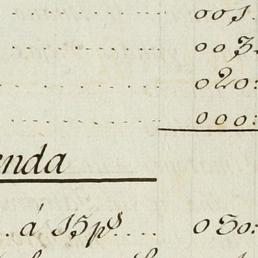 001.
003
020:
000:
enda
á 15p.s 030: